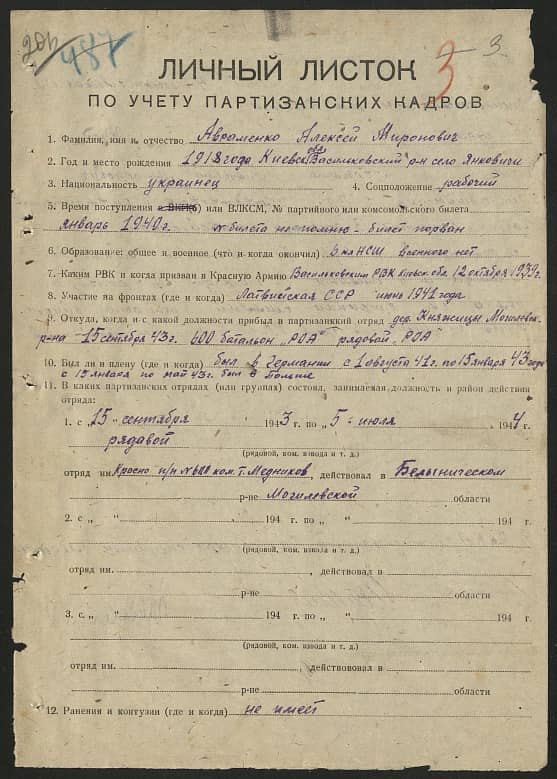 487
3
3.
ЛИЧНЫЙ ЛИСТОК
ПО УЧЕТУ ПАРТИЗАНСКИХ КАДРОВ
1. Фамилия, имя и отчество Авраменко Алексей Миронович
2. Год и место рождения 1918 года Киевск обл Васильковский р-н село Янковичи
3. Национальность украинец 4. Соцположение рабочий
5. Время поступления в ВКП(б) или ВЛКСМ, № партийного или комсомольского билета
январь 1940 г. № билета не помню - билет порван
6. Образование: общее и военное (что и когда окончил) 6 кл НСШ военного нет
7. Каким РВК и когда призван в Красную Армию Васильковским РВК Киевск. обл. 12 октября 1939 г.
8. Участие на фронтах (где и когда) Латвийская ССР июнь 1941 года
9. Откуда, когда и с какой должности прибыл в партизанский отряд дер. Княжицы Могилевск.
р-на 15 сентября 43 г. 600 батальон „РОА" рядовой „РОА"
10. Был ли в плену (где и когда) был в Германии с 1 августа 41 г. по 15 января 43 года
с 15 января по май 43 г. был в Польше
11. В каких партизанских отрядах (или группах) состоял, занимаемая должность и район действия
отряда:
1. с „15" сентября 1943 г. по „5" июля 1944 г.
рядовой
(рядовой, ком. взвода и т. д.)
отряд им. п/п № 600 ком. т. Медников, действовал в Белыническом
р-не Могилевской области
2. с „ " 194 г. по „ " 194 г.
(рядовой, ком. взвода и т. д.)
отряд им. , действовал в
р-не области
3. с „ " 194 г. по „ " 194 г.
(рядовой, ком. взвода и т. д.)
отряд им. , действовал в
р-не области
12. Ранения и контузии (где и когда) не имеет